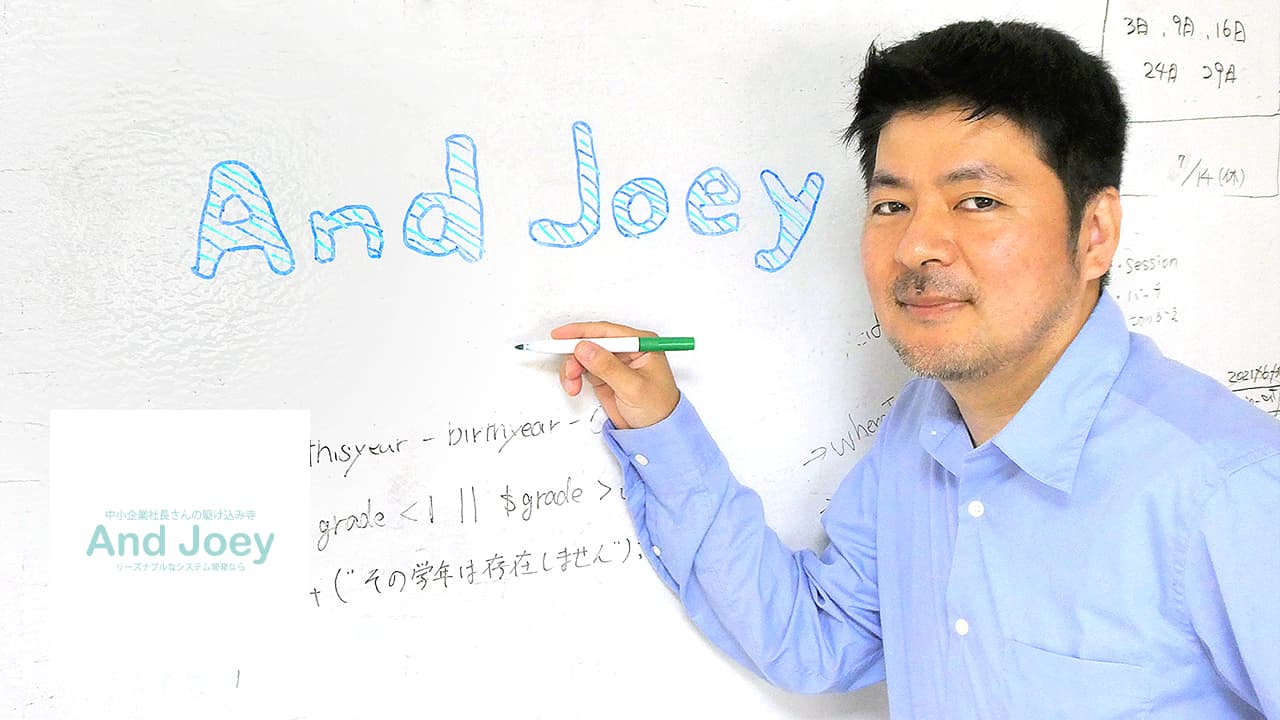 And Joey
3日, 9日, 16日
24日 29日
7/14(休)
・Session
・バーチ
thisyear - birthyear -
grade < 1 || $grade >
→ where
t ("その学年は存在しません");
中小企業社長さんの駆け込み寺
And Joey
リーズナブルなシステム開発なら